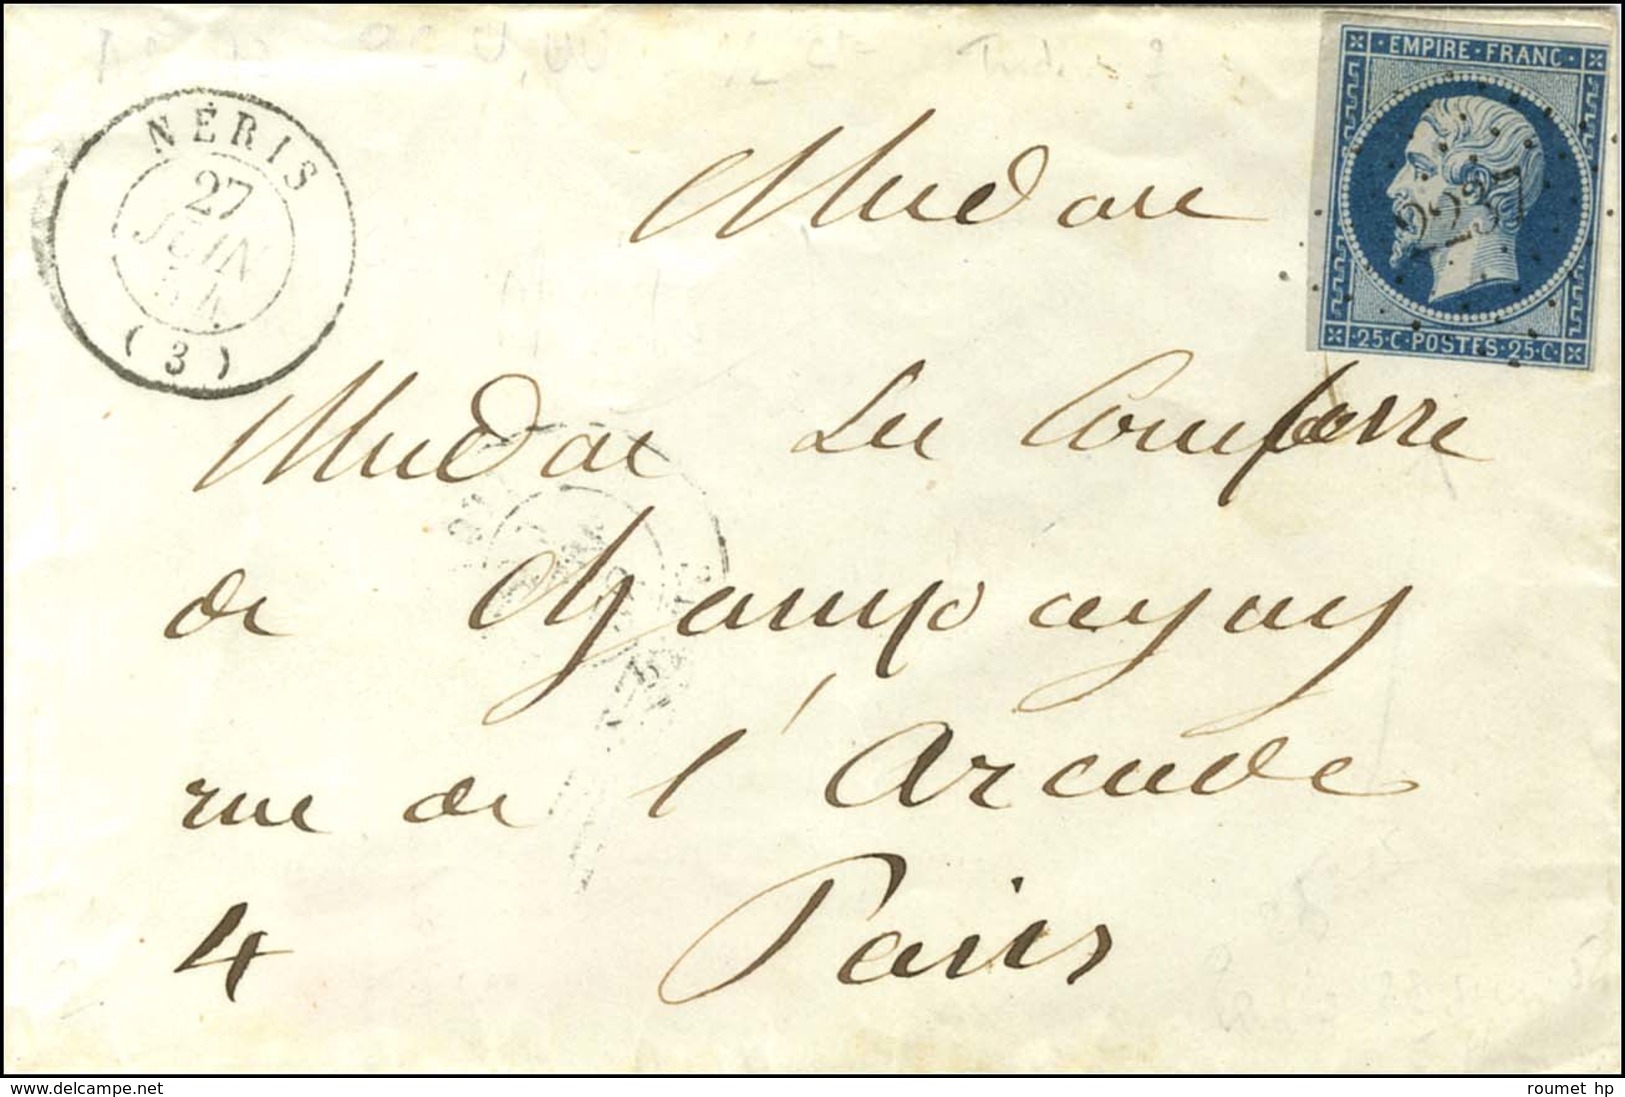 NÉRIS
27
JUIN
54
(3)
EMPIRE · FRANC ·
2237
· 25 · C · POSTES · 25 · C ·
Madame
Madame La Comtesse
de Champagny
rue de l'Arcade
4 Paris
www.delcampe.net
roumet hp